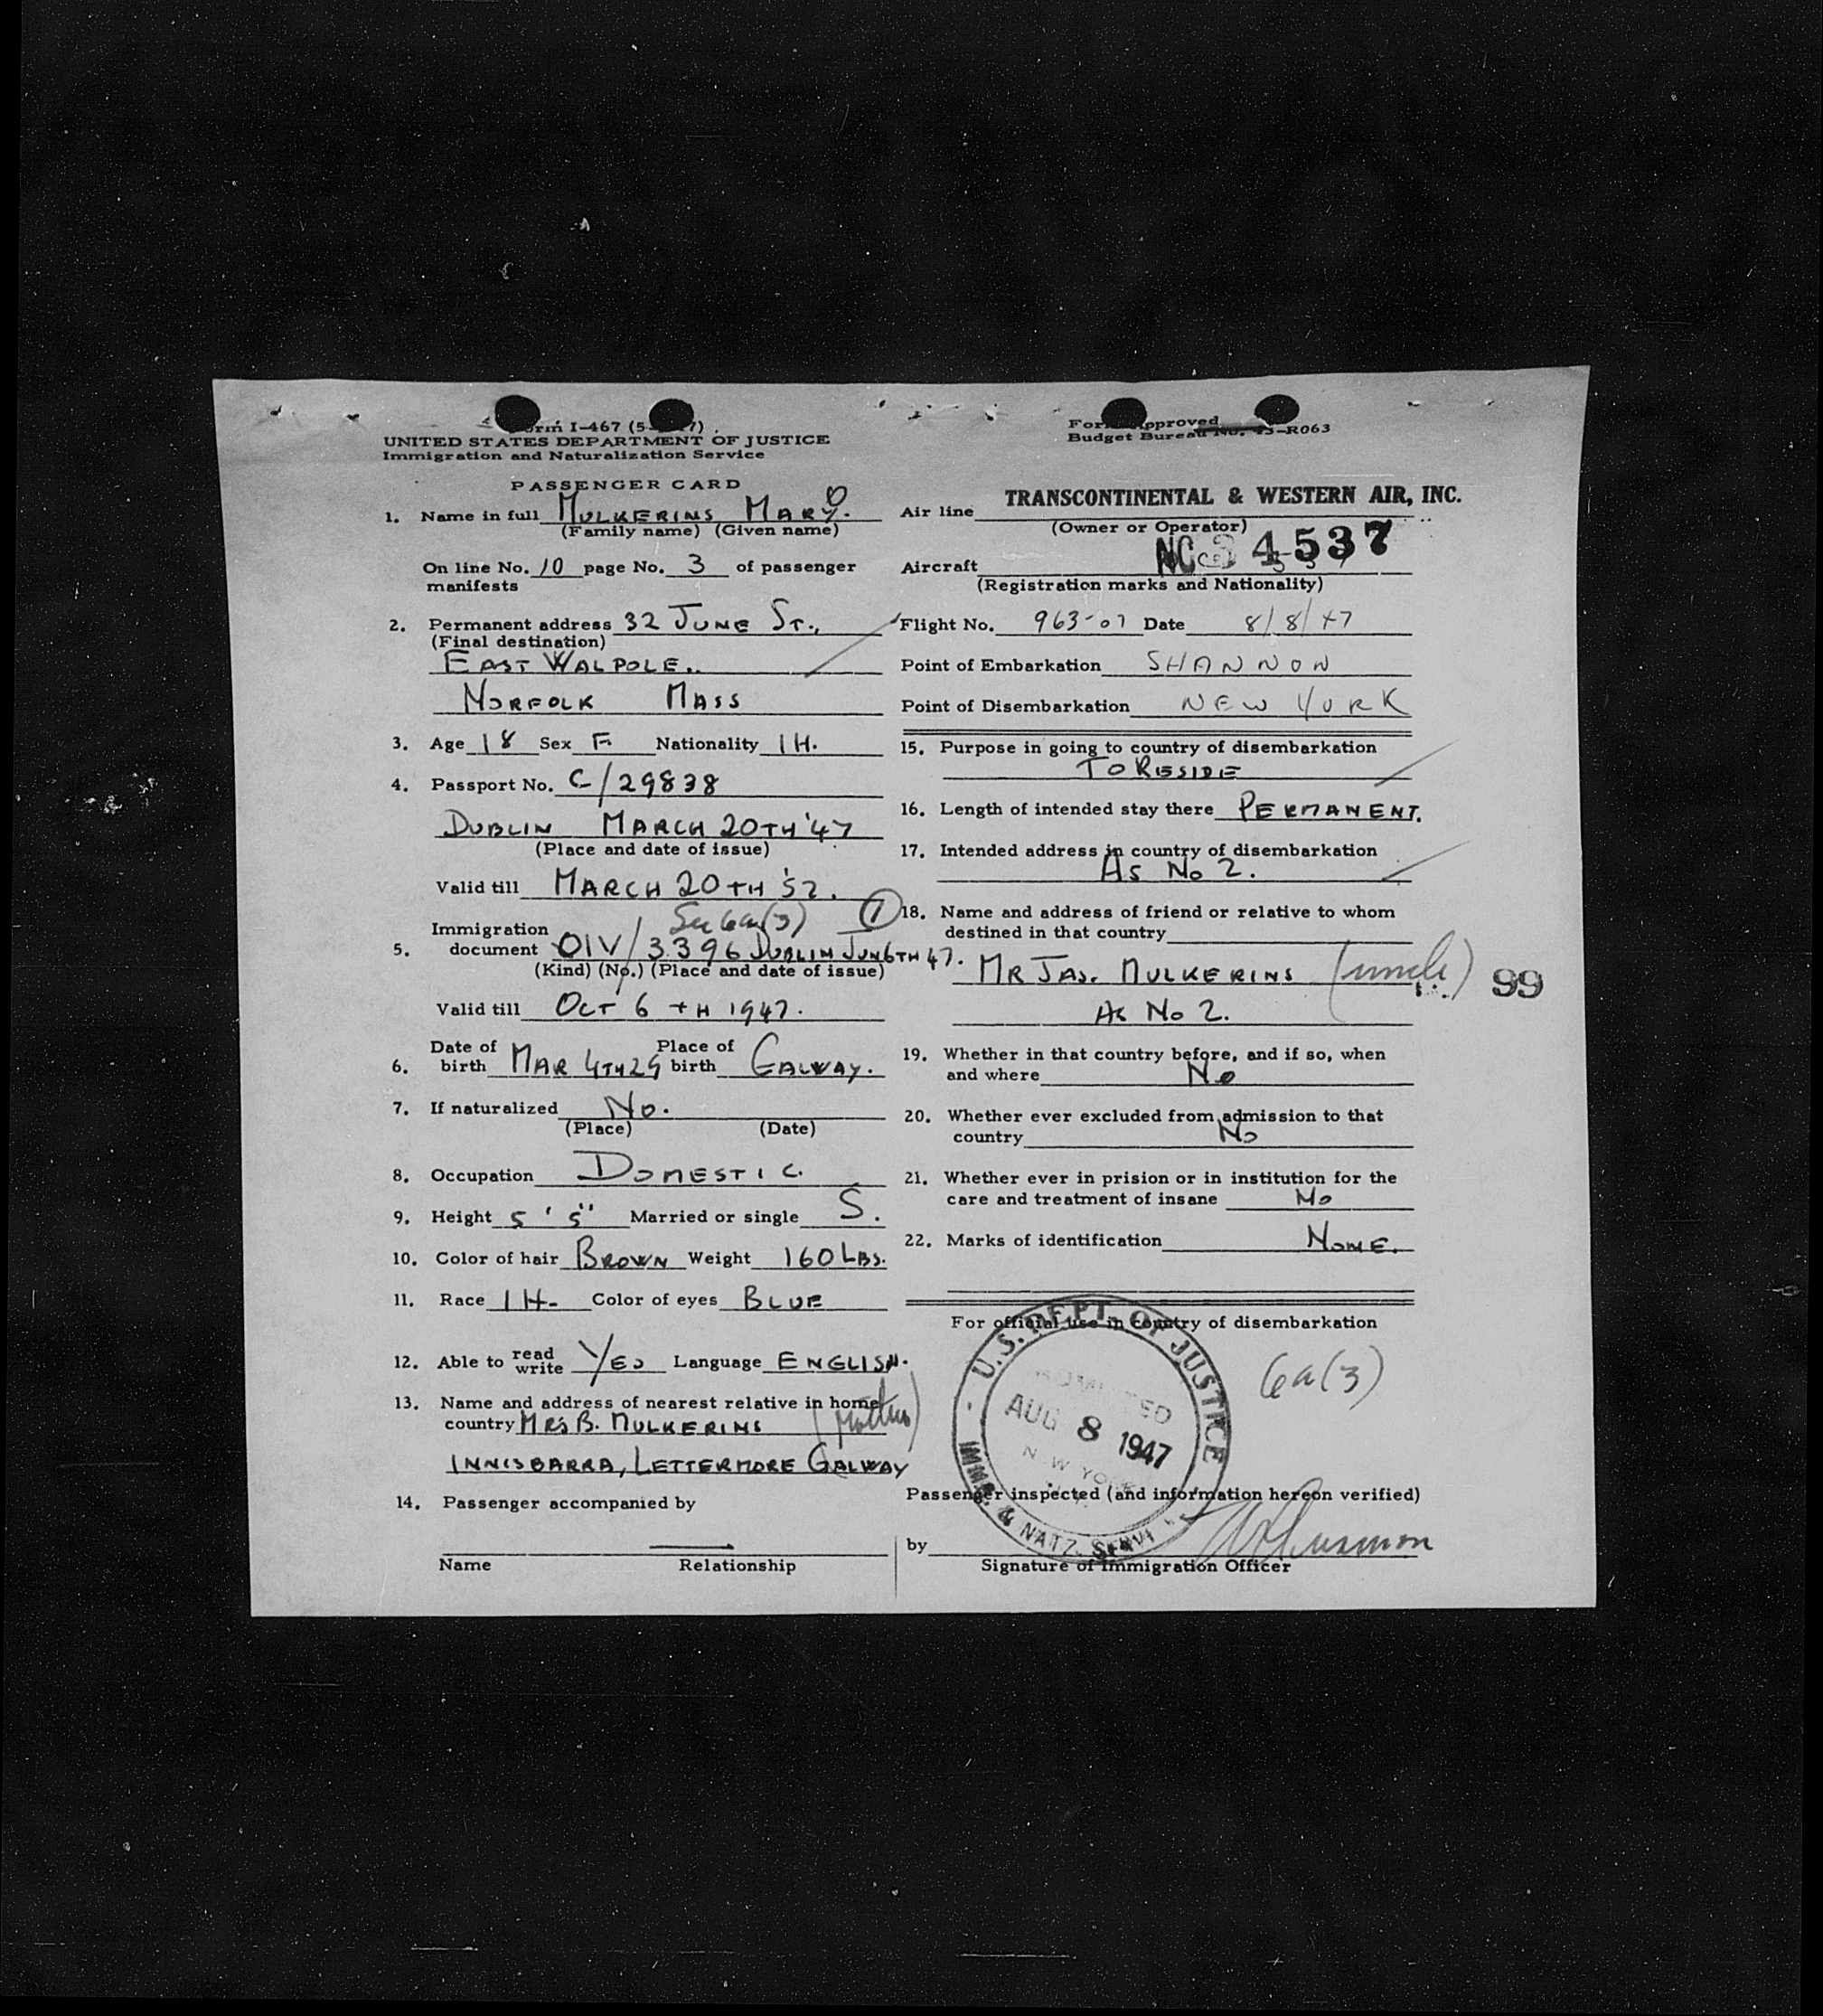 Form I-467 (5- 7)
UNITED STATES DEPARTMENT OF JUSTICE
Immigration and Naturalization Service
PASSENGER CARD
1. Name in full MULKERINS MARY.
(Family name) (Given name)
On line No. 10 page No. 3 of passenger
manifests
2. Permanent address 32 JUNE ST.,
(Final destination)
EAST WALPOLE.
NORFOLK MASS
3. Age 18 Sex F. Nationality IH.
4. Passport No. C/29838
DUBLIN MARCH 20TH '47
(Place and date of issue)
Valid till MARCH 20TH '52.
6a(3) 1
Immigration
5. document QIV/3396 DUBLIN JUN 6TH 47.
(Kind) (No.) (Place and date of issue)
Valid till OCT 6TH 1947.
6. Date of birth MAR 4TH 29 Place of birth GALWAY.
7. If naturalized No.
(Place) (Date)
8. Occupation DOMESTIC.
9. Height 5' 5" Married or single S.
10. Color of hair BROWN Weight 160 LBS.
11. Race IH- Color of eyes BLUE
12. Able to read write YES Language ENGLISH.
13. Name and address of nearest relative in home
country MRS B. MULKERINS (Mother)
INNISBARRA, LETTERMORE GALWAY
14. Passenger accompanied by
Name Relationship
Form Approved
Budget Bureau No. 43-R063
TRANSCONTINENTAL & WESTERN AIR, INC.
Air line
(Owner or Operator)
Aircraft NC 34537
(Registration marks and Nationality)
Flight No. 963-07 Date 8/8/47
Point of Embarkation SHANNON
Point of Disembarkation NEW YORK
15. Purpose in going to country of disembarkation
TO RESIDE
16. Length of intended stay there PERMANENT.
17. Intended address in country of disembarkation
AS No 2.
18. Name and address of friend or relative to whom
destined in that country
MR JAS. MULKERINS (uncle) 99
As No 2.
19. Whether in that country before, and if so, when
and where No
20. Whether ever excluded from admission to that
country No
21. Whether ever in prision or in institution for the
care and treatment of insane No
22. Marks of identification NONE.
For official use in country of disembarkation
6a(3)
U.S. DEPT. OF JUSTICE
ADMITTED
AUG 8 1947
NEW YORK
IMMG. & NATZ. SERV
Passenger inspected (and information hereon verified)
by
Signature of Immigration Officer